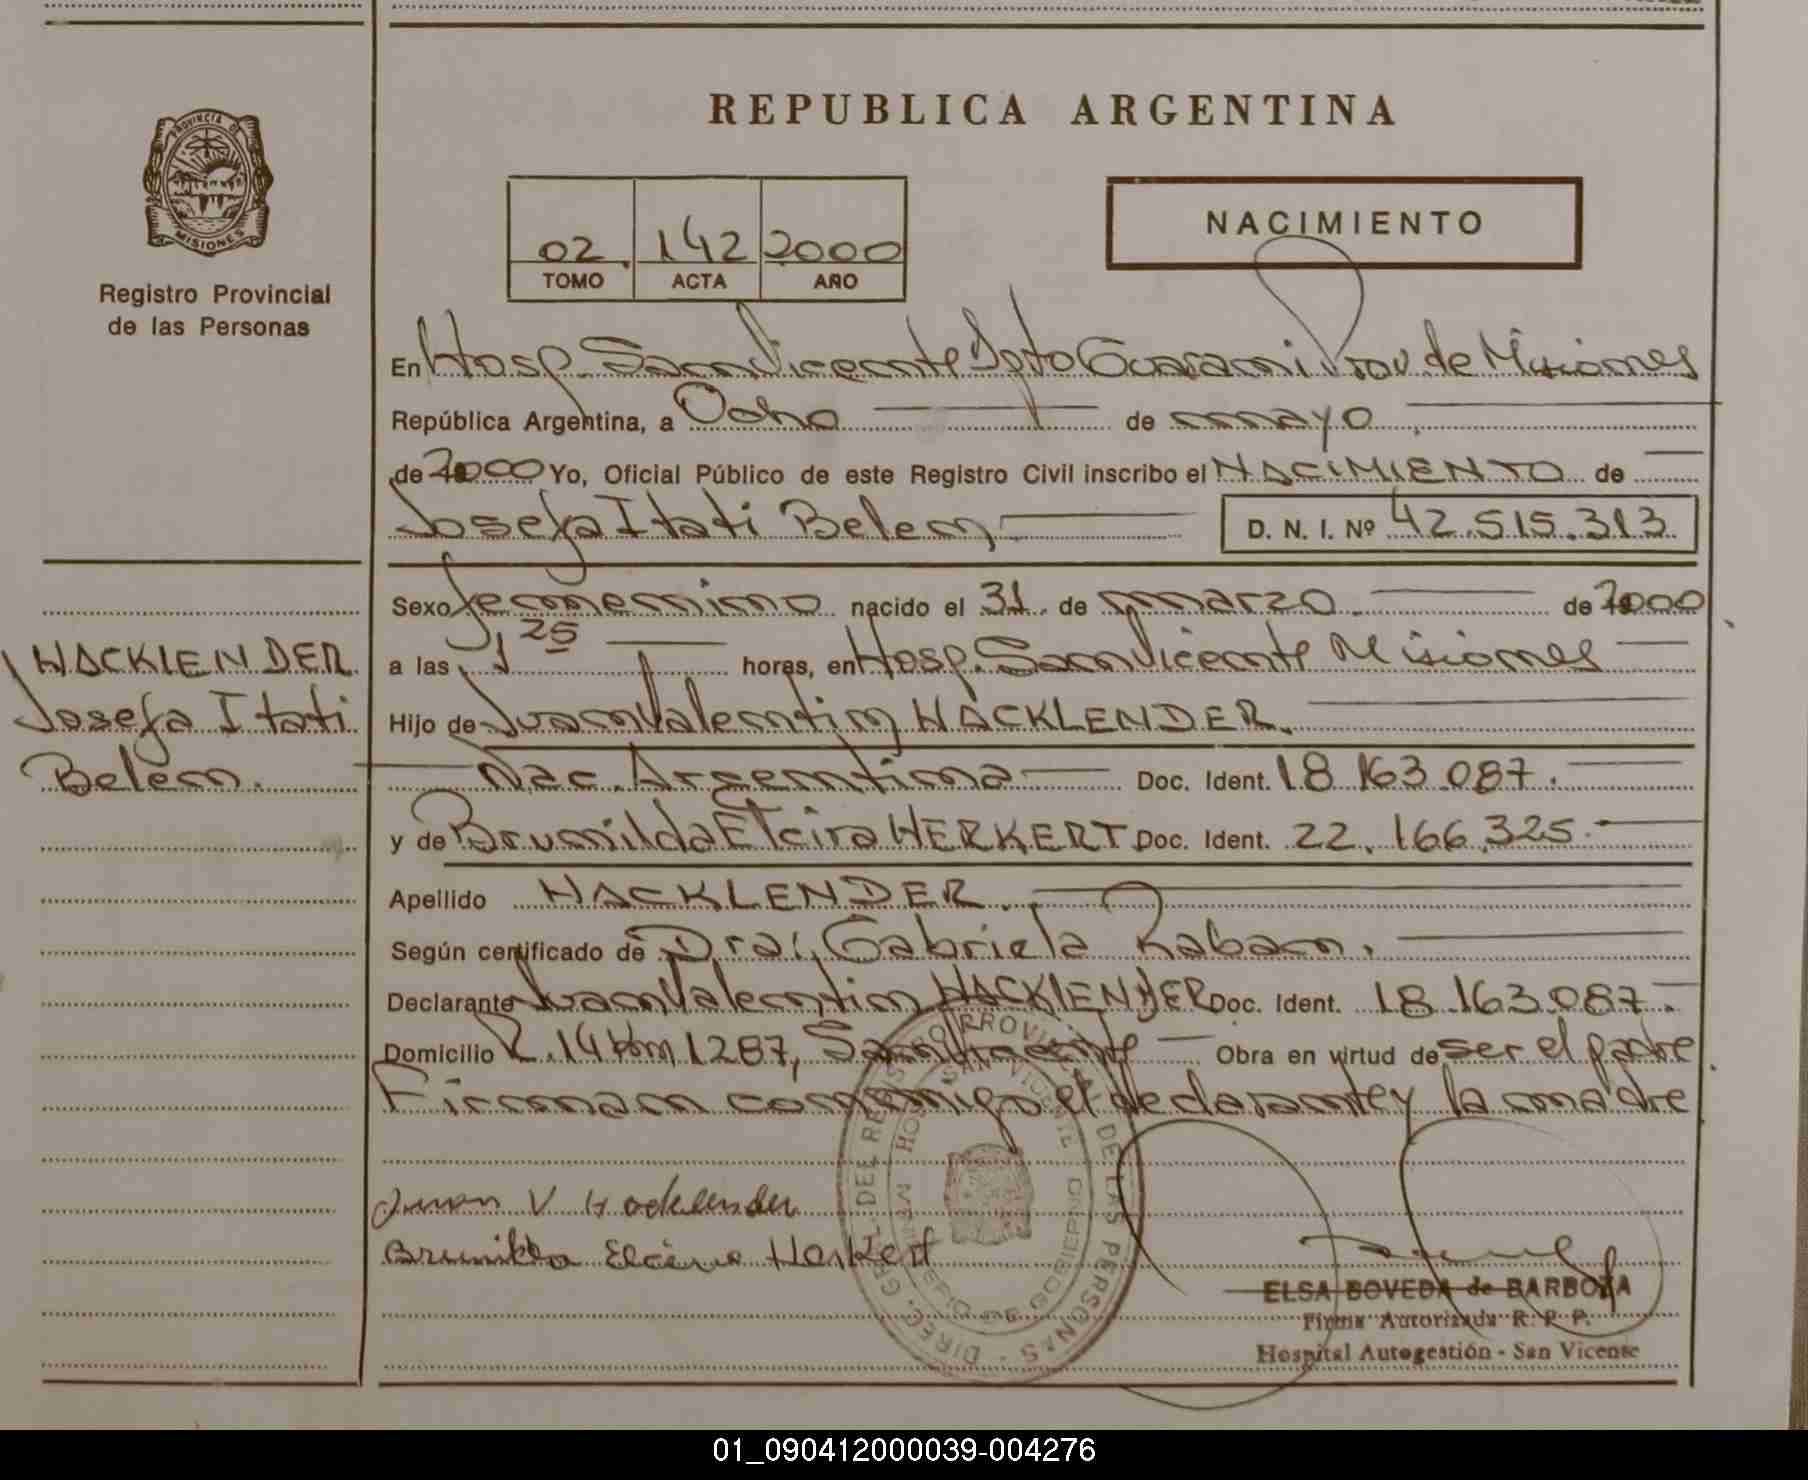 REPUBLICA ARGENTINA
PROVINCIA DE
MISIONES
Registro Provincial
de las Personas
02. 142 2000
TOMO ACTA AÑO
NACIMIENTO
En Hosp. San Vicente Dpto Guarani Prov de Misiones
República Argentina, a Ocho de mayo
de 2000 Yo, Oficial Público de este Registro Civil inscribo el NACIMIENTO de
Josefa Itati Belen D. N. I. Nº 42.515.313
Sexo femenino nacido el 31 de marzo de 2000
a las 1 25 horas, en Hosp. San Vicente Misiones
Hijo de Juan Valentin HACKLENDER.
Nac. Argentina Doc. Ident. 18.163.087.
y de Brunilda Elcira HERKERT Doc. Ident. 22.166.325.
Apellido HACKLENDER.
Según certificado de Dra. Gabriela Raban.
Declarante Juan Valentin HACKLENDER Doc. Ident. 18.163.087.
Domicilio R. 14 Km 1287, San Vicente Obra en virtud de ser el padre
Firman conmigo el declarante y la madre
HACKLENDER
Josefa Itati
Belen.
Juan V Hacklender
Brunilda Elcira Herkert
DIREC. GRAL. DEL REGISTRO PROVINCIAL DE LAS PERSONAS
ELSA BOVEDA de BARBOZA
Firma Autorizada R. P. P.
Hospital Autogestión - San Vicente
01_090412000039-004276